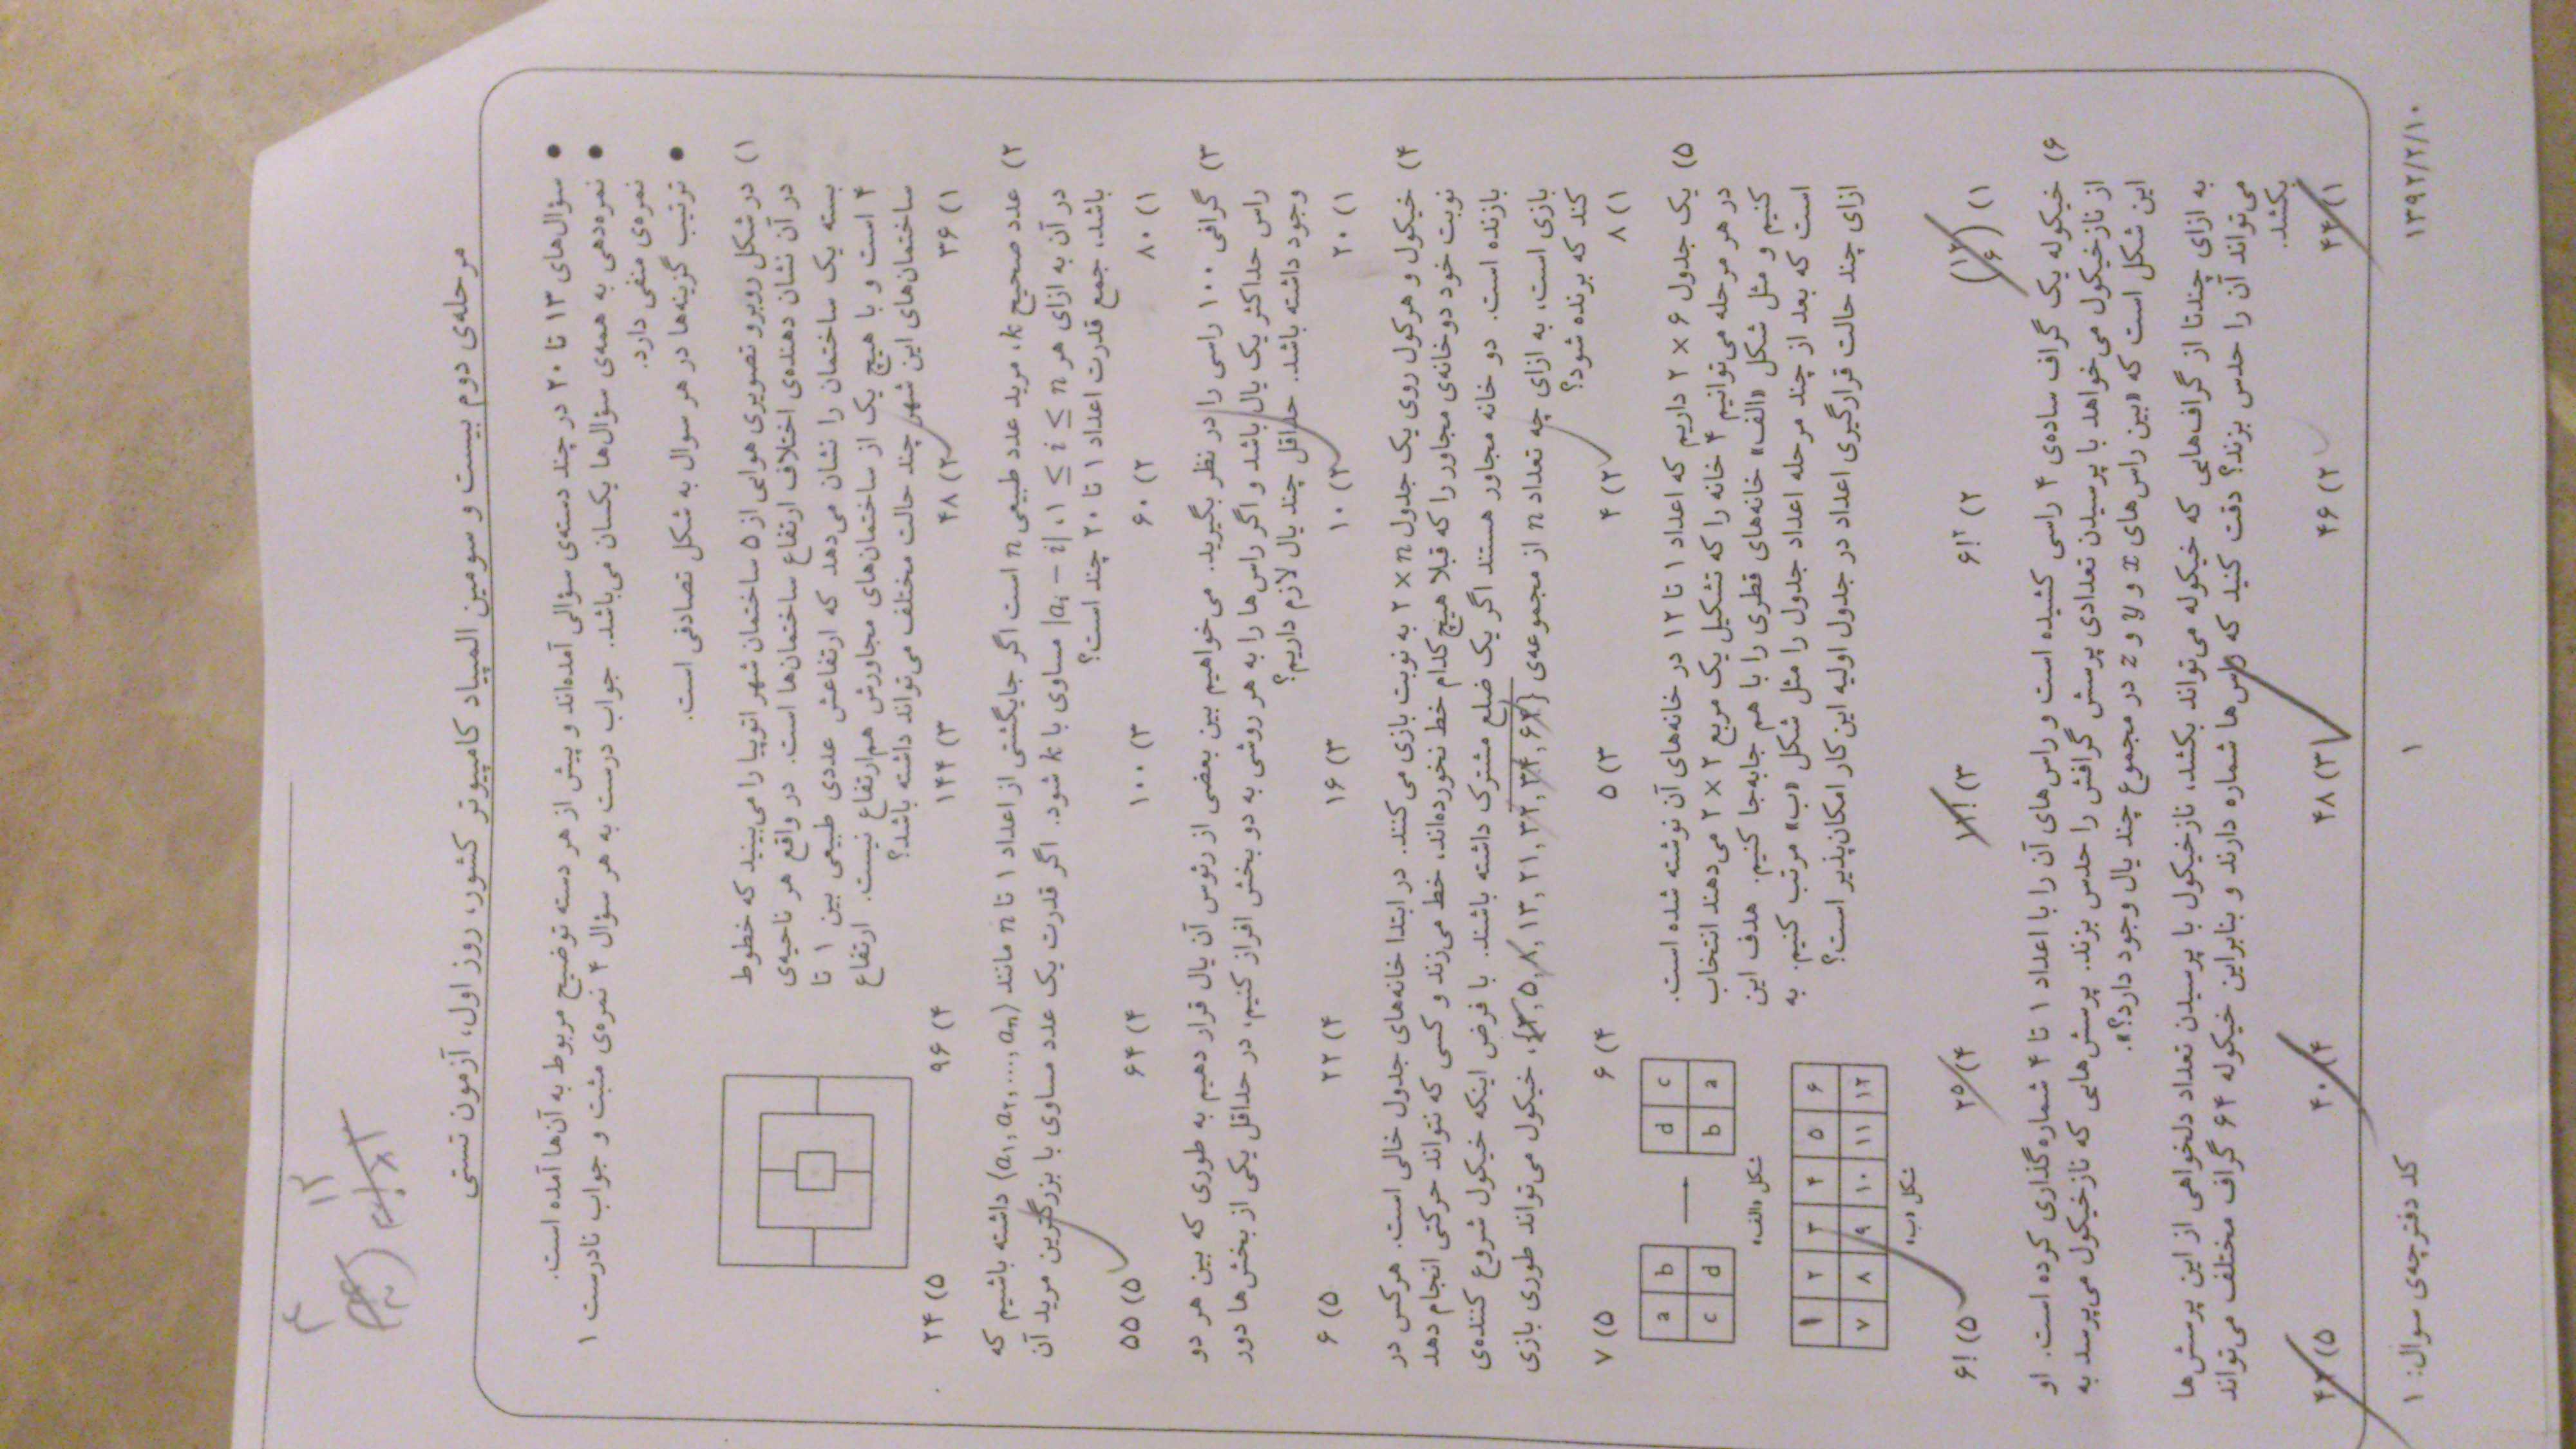 مرحله‌ی دوم بیست و سومین المپیاد کامپیوتر کشور، روز اول، آزمون تستی
• سؤال‌های ۱۳ تا ۲۰ در چند دسته‌ی سؤالی آمده‌اند و پیش از هر دسته توضیح مربوط به آن‌ها آمده است.
• نمره‌دهی به همه‌ی سؤال‌ها یکسان می‌باشد. جواب درست به هر سؤال ۴ نمره‌ی مثبت و جواب نادرست ۱
نمره‌ی منفی دارد.
• ترتیب گزینه‌ها در هر سوال به شکل تصادفی است.
۱) در شکل روبرو تصویری هوایی از ۵ ساختمان شهر اتوپیا را می‌بینید که خطوط
در آن نشان دهنده‌ی اختلاف ارتفاع ساختمان‌ها است. در واقع هر ناحیه‌ی
بسته یک ساختمان را نشان می‌دهد که ارتفاعش عددی طبیعی بین ۱ تا
۴ است و با هیچ یک از ساختمان‌های مجاورش هم‌ارتفاع نیست. ارتفاع
ساختمان‌های این شهر چند حالت مختلف می‌تواند داشته باشد؟
۱) ۳۶ ۲) ۴۸ ۳) ۱۴۴ ۴) ۹۶ ۵) ۲۴
۲) عدد صحیح k، مرید عدد طبیعی n است اگر جایگشتی از اعداد ۱ تا n مانند (a۱, a۲, ..., an) داشته باشیم که
در آن به ازای هر ۱ ≤ i ≤ n، |ai − i| مساوی با k شود. اگر قدرت یک عدد مساوی با بزرگترین مرید آن
باشد، جمع قدرت اعداد ۱ تا ۲۰ چند است؟
۱) ۸۰ ۲) ۶۰ ۳) ۱۰۰ ۴) ۶۴ ۵) ۵۵
۳) گرافی ۱۰۰ راسی را در نظر بگیرید. می‌خواهیم بین بعضی از رئوس آن یال قرار دهیم به طوری که بین هر دو
راس حداکثر یک یال باشد و اگر راس‌ها را به هر روشی به دو بخش افراز کنیم، در حداقل یکی از بخش‌ها دور
وجود داشته باشد. حداقل چند یال لازم داریم؟
۱) ۲۰ ۲) ۱۰ ۳) ۱۶ ۴) ۲۲ ۵) ۶
۴) خیکول و هرکول روی یک جدول ۲ × n به نوبت بازی می‌کنند. در ابتدا خانه‌های جدول خالی است. هرکس در
نوبت خود دو خانه‌ی مجاور را که قبلا هیچ کدام خط نخورده‌اند، خط می‌زند و کسی که نتواند حرکتی انجام دهد
بازنده است. دو خانه مجاور هستند اگر یک ضلع مشترک داشته باشند. با فرض اینکه خیکول شروع کننده‌ی
بازی است، به ازای چه تعداد n از مجموعه‌ی {۳, ۵, ۸, ۱۳, ۲۱, ۳۲, ۳۴, ۶۴}، خیکول می‌تواند طوری بازی
کند که برنده شود؟
۱) ۸ ۲) ۴ ۳) ۵ ۴) ۶ ۵) ۷
۵) یک جدول ۲ × ۶ داریم که اعداد ۱ تا ۱۲ در خانه‌های آن نوشته شده است.
در هر مرحله می‌توانیم ۴ خانه را که تشکیل یک مربع ۲ × ۲ می‌دهند انتخاب
کنیم و مثل شکل «الف» خانه‌های قطری را با هم جابه‌جا کنیم. هدف این
است که بعد از چند مرحله اعداد جدول را مثل شکل «ب» مرتب کنیم. به
ازای چند حالت قرارگیری اعداد در جدول اولیه این کار امکان‌پذیر است؟
a b d c
c d b a
شکل «الف»
۱ ۲ ۳ ۴ ۵ ۶
۷ ۸ ۹ ۱۰ ۱۱ ۱۲
شکل «ب»
۱) (۱۲ ۶) ۲) ۶!۲ ۳) ۱۲! ۴) ۲۵ ۵) ۶!
۶) خیکوله یک گراف ساده‌ی ۴ راسی کشیده است و راس‌های آن را با اعداد ۱ تا ۴ شماره‌گذاری کرده است. او
از نازخیکول می‌خواهد با پرسیدن تعدادی پرسش گرافش را حدس بزند. پرسش‌هایی که نازخیکول می‌پرسد به
این شکل است که «بین راس‌های x و y و z در مجموع چند یال وجود دارد؟».
به ازای چندتا از گراف‌هایی که خیکوله می‌تواند بکشد، نازخیکول با پرسیدن تعداد دلخواهی از این پرسش‌ها
می‌تواند آن را حدس بزند؟ دقت کنید که راس‌ها شماره دارند و بنابراین خیکوله ۶۴ گراف مختلف می‌تواند
بکشد.
۲) ۴۶ ۳) ۴۸ ۴) ۴۰
کد دفترچه‌ی سوال: ۱ ۱ ۱۳۹۲/۲/۱۰